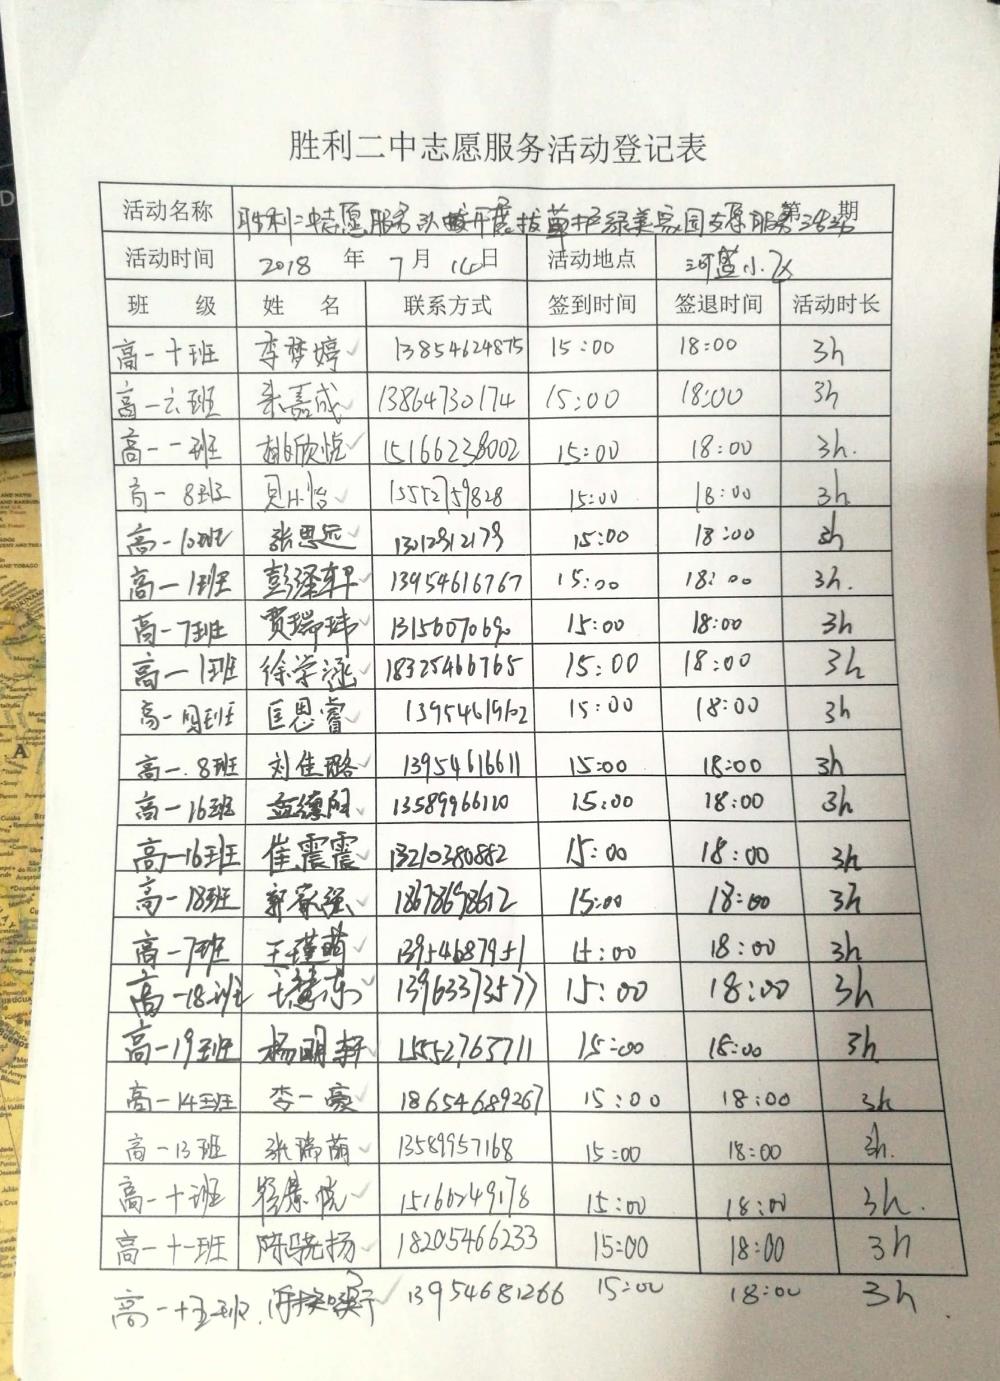 胜利二中志愿服务活动登记表
活动名称 胜利二中志愿服务队开展拔草护绿美家园志愿服务活动 第 期
活动时间 2018 年 7 月 14 日 活动地点 河蓝小区
班 级 姓 名 联系方式 签到时间 签退时间 活动时长
高一十班 李梦婷 13854624875 15:00 18:00 3h
高一六班 张嘉成 13864730174 15:00 18:00 3h
高一一班 胡欣悦 15166238002 15:00 18:00 3h.
高一8班 15552759828 15:00 18:00 3h
高一10班 张思远 15:00 18:00 3h
高一1班 彭泽轩 13954616767 15:00 18:00 3h.
高一7班 贾瑞玮 13156070690 15:00 18:00 3h
高一1班 徐学涵 18325466765 15:00 18:00 3h
高一 匡思睿 13954619602 15:00 18:00 3h
高一.8班 刘佳璐 13954616611 15:00 18:00 3h
高一16班 孟德阳 13589966110 15:00 18:00 3h
高一16班 崔震震 13210380882 15:00 18:00 3h
高一18班 郭家强 18678698612 15:00 18:00 3h
高一7班 王瑾萌 13954687951 15:00 18:00 3h
高一18班 13963373577 15:00 18:00 3h
高一19班 杨明轩 15552763711 15:00 18:00 3h
高一14班 李一豪 18654689267 15:00 18:00 3h
高一13班 张瑞萌 13589957168 15:00 18:00 3h.
高一十班 15166249178 15:00 18:00 3h.
高一十一班 陈骁扬 18205466233 15:00 18:00 3h
高一十五班. 13954681266 15:00 18:00 3h